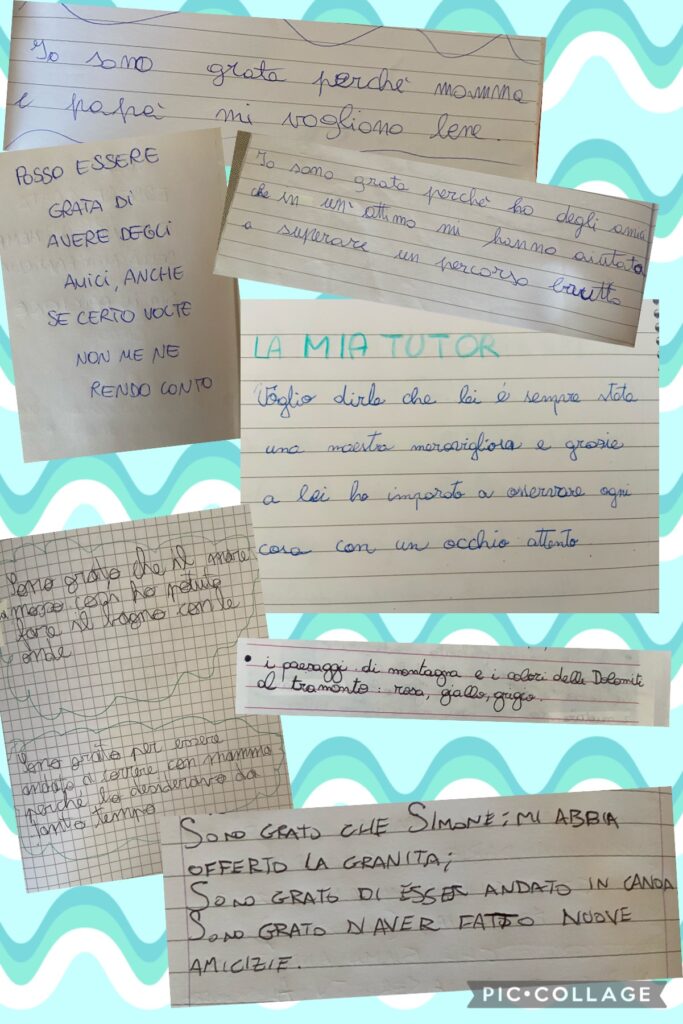 Io sono grata perchè mamma
e papà mi vogliono bene.
POSSO ESSERE
GRATA DI
AVERE DEGLI
AMICI, ANCHE
SE CERTO VOLTE
NON ME NE
RENDO CONTO
Io sono grata perchè ho degli amici
che in un'attimo mi hanno aiutata
a superare un percorso brutto
LA MIA TUTOR
Voglio dirle che lei è sempre stata
una maestra meravigliosa e grazie
a lei ho imparato a osservare ogni
cosa con un occhio attento
Sono grato che il mare
mosso così ho potuto
fare il bagno con le
onde
• i paesaggi di montagna e i colori delle Dolomiti
al tramonto: rosa, giallo, grigio.
Sono grato per essere
andato a correre con mamma
perchè lo desideravo da
tanto tempo
SONO GRATO CHE SIMONE; MI ABBIA
OFFERTO LA GRANITA;
SONO GRATO DI ESSER ANDATO IN CANOA
SONO GRATO D'AVER FATTO NUOVE
AMICIZIE.
PIC•COLLAGE